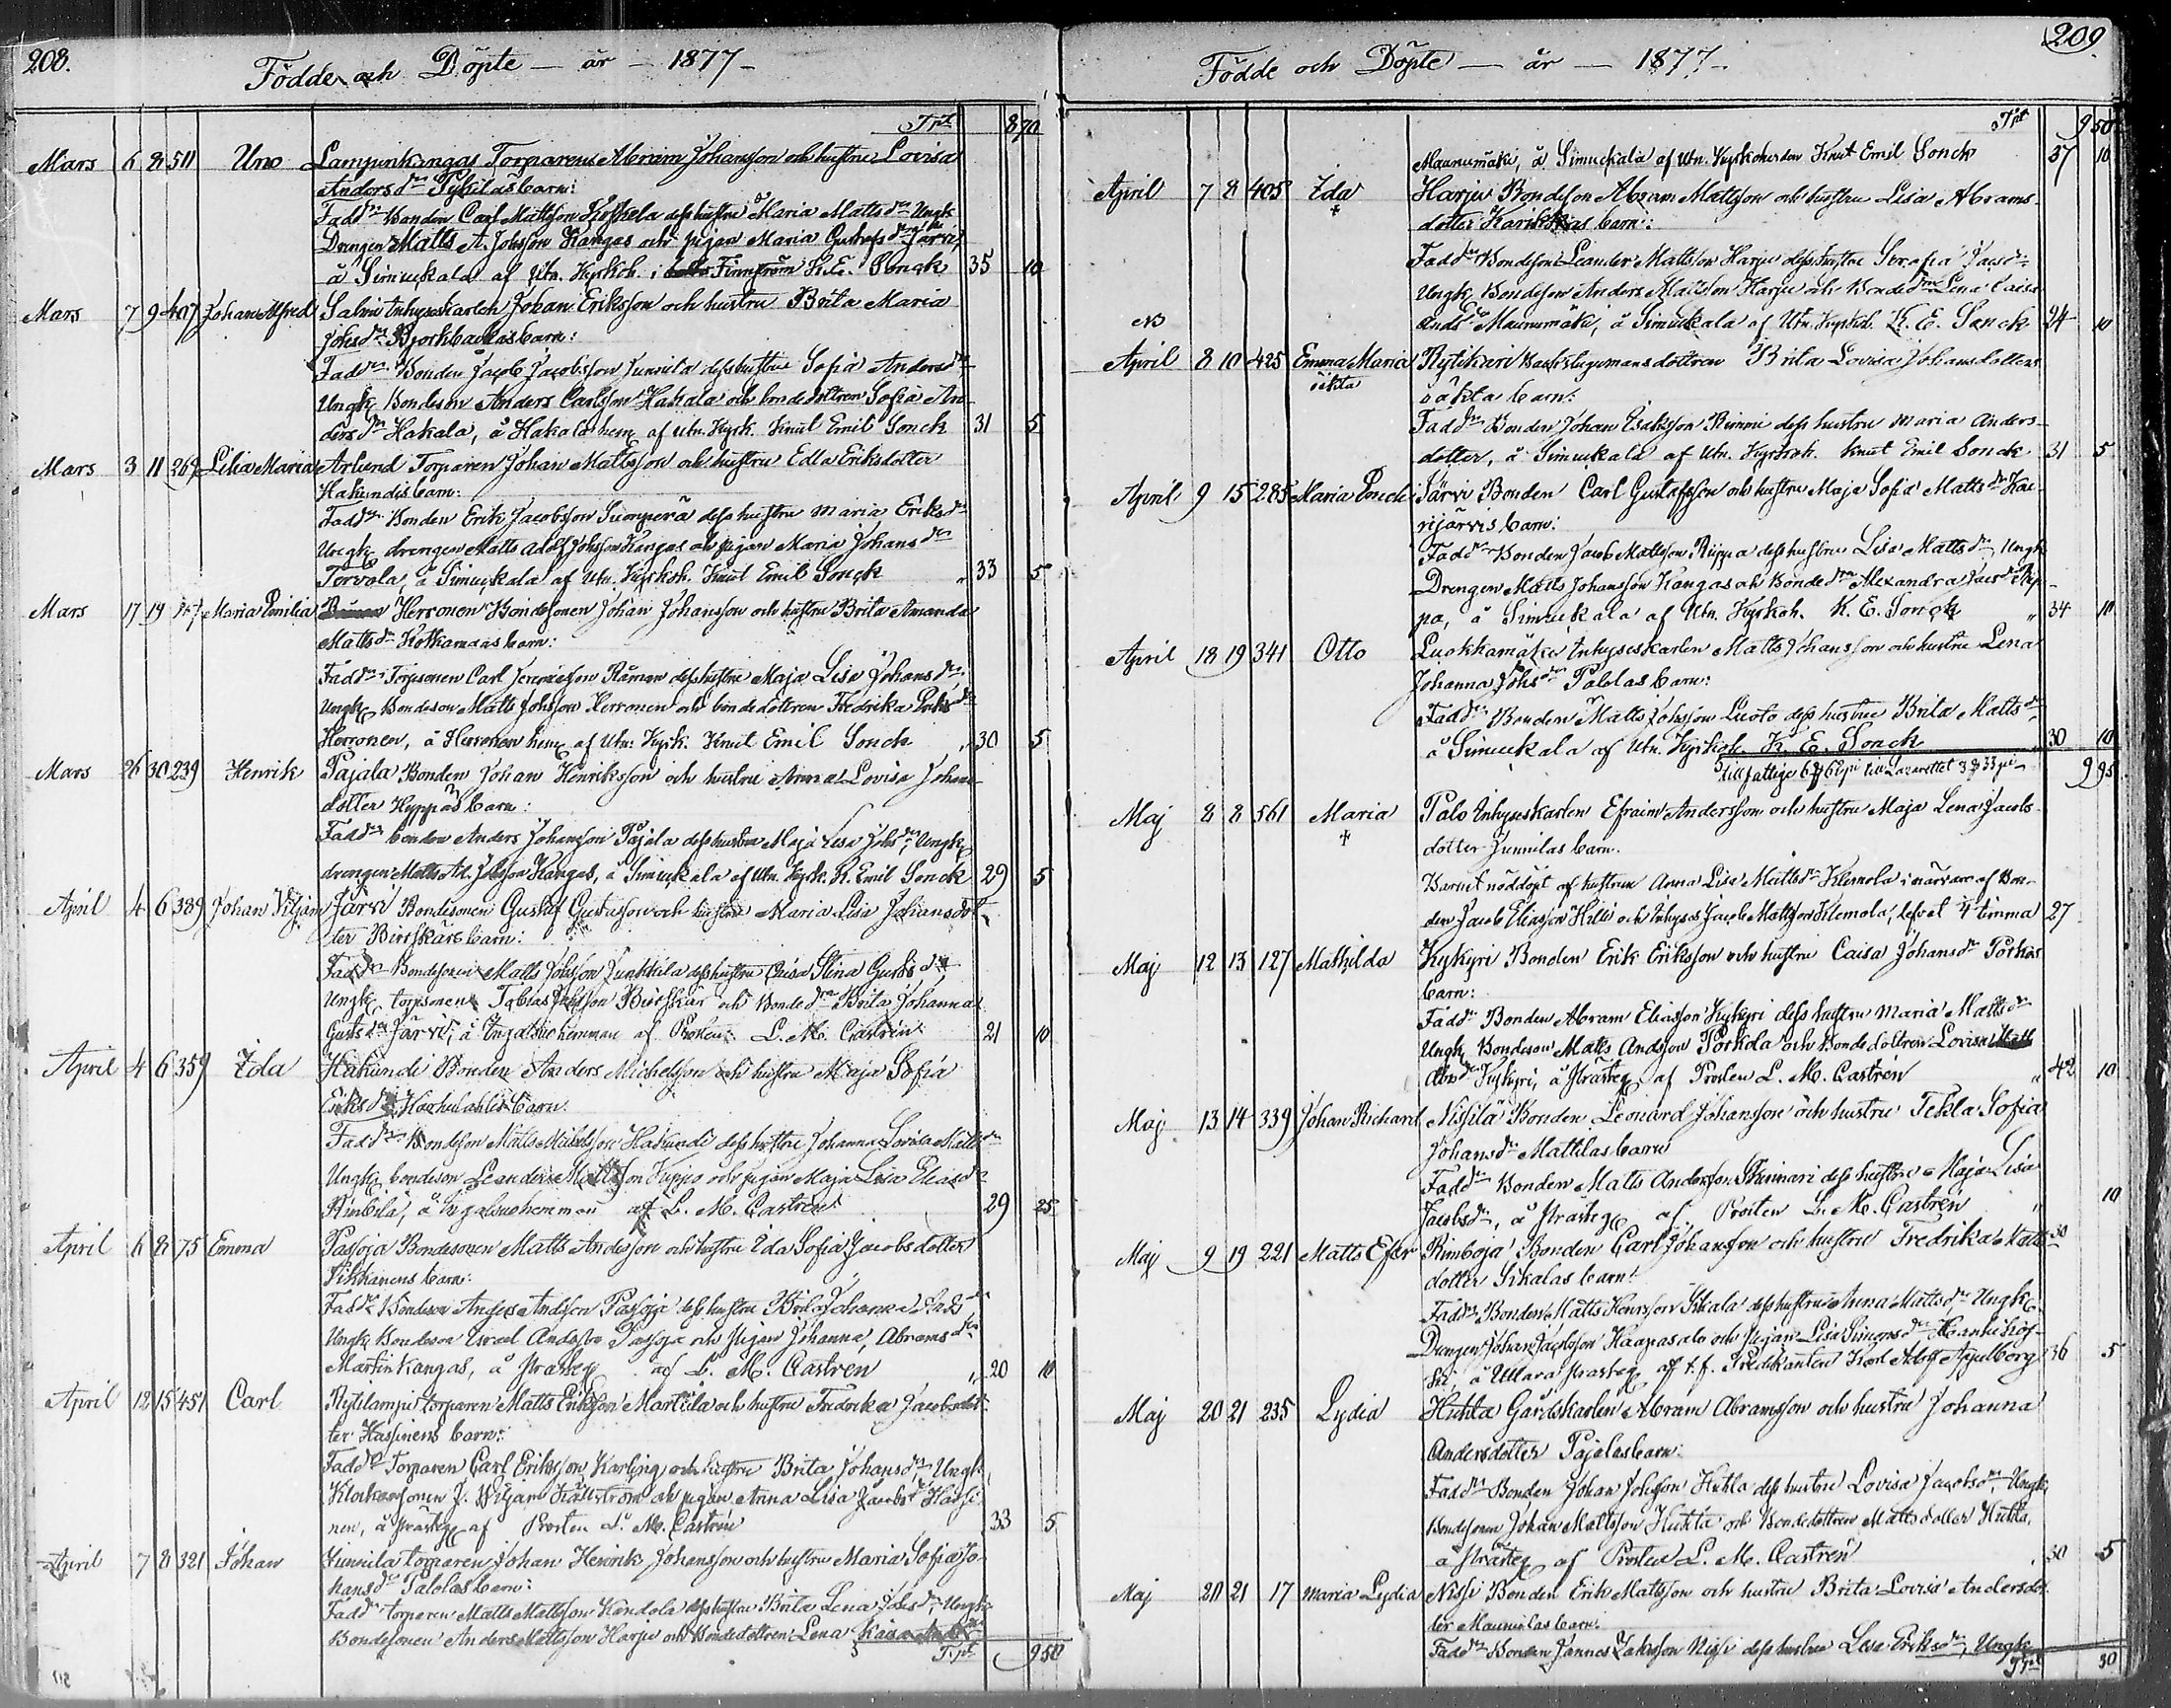 208.
Födde och Döpte — år — 1877 —
Tpt 8 70
Mars 6 8 511 Uno Lampinkangas Torparens Abram Johansson och hustru Lovisa
Anders dr barn:
Fadd: Bonden Carl Mattsson Koskela dess hustru Maria Matts dr Ungk
Drengen Matts A. Johsson Kangas och pigan Maria Gustafs dr Järvi,
å Simuckala af Utn. Kyrkoh. i K. E. Sonck 35 10
Mars 7 9 407 Johan Alfred Salmi Inhyseskarlen Johan Eriksson och hustru Brita Maria
Johs dr Björkbackas barn:
Fadd: Bonden Jacob Jacobsson Junnila dess hustru Sofia Anders dr
Ungk Bondeson Anders Carlsson Hakala och bondedottren Sofia An-
ders dr Hakala, å Hakala hem af utn. Kyrk. Knut Emil Sonck 31 5
Mars 3 11 269 Lilia Maria Torparen Johan Mattsson och hustru Edla Eriksdotter
Hakundis barn:
Fadd: Bonden Erik Jacobsson Suonperä dess hustru Maria Eriks dr
Ungk drengen Matts Adolf Johsson Kangas och pigan Maria Johans dr
Torvola, å Simuckala af Utn. Kyrkoh. Knut Emil Sonck " 33 5
Mars 17 19 Maria Emilia Herronen Bondesonen Johan Johansson och hustru Brita Amanda
Matts dr Kotkamaas barn:
Fadd: Torpsonen Carl Jeremiesson Råman dess hustru Maja Lisa Johans dr
Ungk Bondeson Matts Johsson Herronen och bondedottren Fredrika dr
Herronen, å Herronen hem af Utn: Kyrk. Knut Emil Sonck " 30 5
Mars 26 30 239 Henrik Pajala Bonden Johan Henriksson och hustru Anna Lovisa Johans
dotter Hyppäs barn:
Fadd: bonden Anders Johansson Pajala dess hustru Maja Lisa Johs dr, Ungk
drengen Matts Ad. Johsson Kangas, å Simuckala af Utn. Kyrk. K. Emil Sonck 29 5
April 4 6 389 Johan Viljam Järvi Bondesonen Gustaf Gustafsson och hustru Maria Lisa Johansdot-
ter Birrskärs barn:
Fadd: Bondesonen Matts Johsson Junkkila dess hustru Caisa Stina Gustafs dr,
Ungk torpsonen Tobias Johsson Birrskär och Bonde dr Brita Johanna
Gusts dr Järvi, å Ingalsuo hemman af Prosten L. M. Castrén 21 10
April 4 6 359 Ida Hakundi Bonden Anders Michelsson och hustru Maja Sofia
Eriks dr barn.
Fadd: Bondeson Matts Michelsson Hakundi dess hustru Johanna Lovisa Matts dr
Ungk bondeson Leander Mattsson och pigan Maja Lisa Elias dr
å Ingalsuo hemman af L. M. Castrén 29 25
April 6 8 75 Emma Passoja Bondesonen Matts Andersson och hustru Ida Sofia Jacobs dotter
Pikkarens barn:
Fadd: Bondeson Anders Andsson Passoja dess hustru Brita Johanna Ands dr
Ungk Bondeson Israel Andsson Passoja och pigan Johanna Abrams dr
Martinkangas, å prästeg af L. M. Castrén " 20 10
April 12 15 451 Carl torparen Matts Eriksson Marttila och hustru Fredrika Jacobsdot-
ter Hassinens barn:
Fadd: Torparen Carl Eriksson Karling och hustru Brita Johans dr, Ungk
Klockarsonen J. Viljam Källström och pigan Anna Lisa Jacobs dr Hassi-
nen, å prästeg af Prosten L. M. Castrén 33 5
April 7 8 321 Johan Junnila torparen Johan Henrik Johansson och hustru Maria Sofia Jo-
hans dr Palolas barn:
Fadd: torparen Matts Mattsson Kandola dess hustru Brita Lena Johs dr, Ungk
Bondesonen Anders Mattsson Harju och Bondedottren Lena Kaisa
Tpt 950
209.
Födde och Döpte — år — 1877 —
Tpt 950
Maunumäki, å Simuckala af Utn. Kyrkoherden Knut Emil Sonck 37 10
April 7 8 405 Ida Harju Bondeson Abram Mattsson och hustru Lisa Abrams
dotter barn:
Fadd: Bondeson Leander Mattsson Harju dess hustru Serafia Jacs dr
Ungk Bondeson Anders Mattsson Harju och Bonde dr Lena Caisa
NB Ands dr Maunumäki, å Simuckala af Utn. Kyrkoh. K. E. Sonck 24 10
April 8 10 425 Emma Maria Rytikeri Backstugumansdottren Brita Lovisa Johansdotters
oäkta oäkta barn:
Fadd: Bonden Johan Isaksson Rimmi dess hustru Maria Anders-
dotter, å Simuckala af Utn. Kyrkoh. Knut Emil Sonck 31 5
April 9 15 285 Maria Järvi Bonden Carl Gustafsson och hustru Maja Sofia Matts dr Kau-
rijärvis barn:
Fadd: Bonden Jacob Mattsson Riippa dess hustru Lisa Matts dr, Ungk
Drengen Matts Johansson Kangas och Bonde dr Alexandra Jacs dr Riip-
pa, å Simuckala af Utn. Kyrkoh. K. E. Sonck " 34 10
April 18 19 341 Otto Luokkamäki Inhyseskarlen Matts Johansson och hustru Lena
Johanna Johs dr Palolas barn:
Fadd: Bonden Matts Johsson Luoto dess hustru Brita Matts dr,
å Simuckala af Utn. Kyrkoh. K. E. Sonck " 30 10
till fattige 6 62 pi till Lazarettet 3 33 pi 995
Maj 8 8 561 Maria Palo Inhyseskarlen Efraim Andersson och hustru Maja Lena Jacobs-
dotter Junnilas barn.
Barnet nöddöpt af hustrun Anna Lisa Matts dr Klemola i närvaro af Bon-
den Jacob Eliasson Hilli och Inhyses Jacob Mattsson Klemola, lefvat 1/4 timma 27
Maj 12 13 127 Mathilda Kykyri Bonden Erik Eriksson och hustru Caisa Johans dr Porkos
barn:
Fadd: Bonden Abram Eliasson Kykyri dess hustru Maria Matts dr
Ungk Bondeson Matts Andsson Porkola och Bondedottren Lovisa
Abr dr Kykyri, å prästeg af Prosten L. M. Castrén " 42 10
Maj 13 14 339 Johan Richard Nissilä Bonden Leonard Johansson och hustru Tekla Sofia
Johans dr Mattilas barn
Fadd: Bonden Matts Andersson dess hustru Maja Lisa
Jacobs dr, å prästeg af Prosten L. M. Castrén " 10
Maj 9 19 221 Matts Efer Rimboja Bonden Carl Johansson och hustru Fredrika Matts 30
dotter Sikalas barn:
Fadd: Bonden Matts Henrsson Sikala dess hustru Anna Matts dr, Ungk
Drengen Johan Jacobsson Haapasalo och pigan Lisa Simons dr
å Ullava prästeg af t.f. Predikanten Karl Adolf Appelberg 36 5
Maj 20 21 235 Lydia Huhta Gårdskarlen Abram Abramsson och hustru Johanna
Andersdotter Pajalas barn:
Fadd: Bonden Johan Johsson Huhta dess hustru Lovisa Jacobs dr, Ungk
Bondesonen Johan Mattsson Huhta och Bondedottren Mattsdotter Huhta,
å prästeg af Prosten L. M. Castrén 30 5
Maj 20 21 17 Maria Lydia Nissi Bonden Erik Mattsson och hustru Brita Lovisa Andersdot
ter Maunulas barn:
Fadd: Bonden Jannes Isaksson Nissi dess hustru Lisa Eriks dr, Ungk
Tpt 30